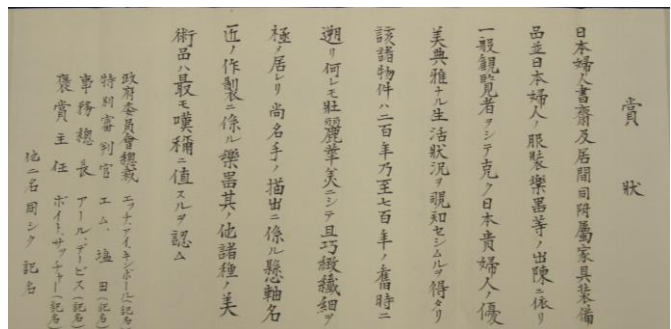 賞狀
日本婦人書齋及居間同附屬家具装備
品並日本婦人ノ服装樂器等ノ出陳ニ依リ
一般観覧者ヲシテ克ク日本貴婦人ノ優
美典雅ナル生活狀況ヲ覗知セシムルヲ得タリ
該諸物件ハ二百年乃至七百年ノ舊時ニ
遡リ何レモ壯麗華美ニシテ且巧緻纎細ヲ
極メ居レリ尚名手ノ描出ニ係ル懸軸名
近ノ作製ニ係ル樂器其ノ他諸種ノ美
術品ハ最モ嘆稱ニ値スルヲ認ム
政府委員會總裁 エッチ、アイ、キンボール(記名)
特別審判官 エム、塩田(記名)
事務總長 アール、デービス(記名)
褒賞主任 ボイド、サッチャー(記名)
他二名同シク記名